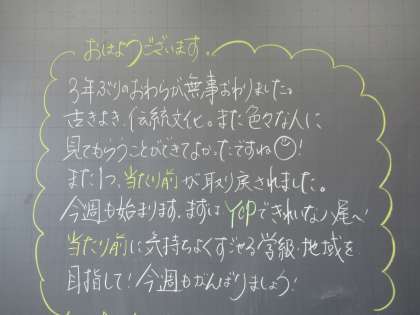 おはようございます。
3年ぶりのおわらが無事おわりました。
古きよき、伝統文化。また色々な人に
見てもらうことができてよかったですね!
また1つ、当たり前が取り戻されました。
今週も始まります。まずはYCPできれいな八尾へ!
当たり前に気持ちよくすごせる学級・地域を
目指して!今週もがんばりましょう!